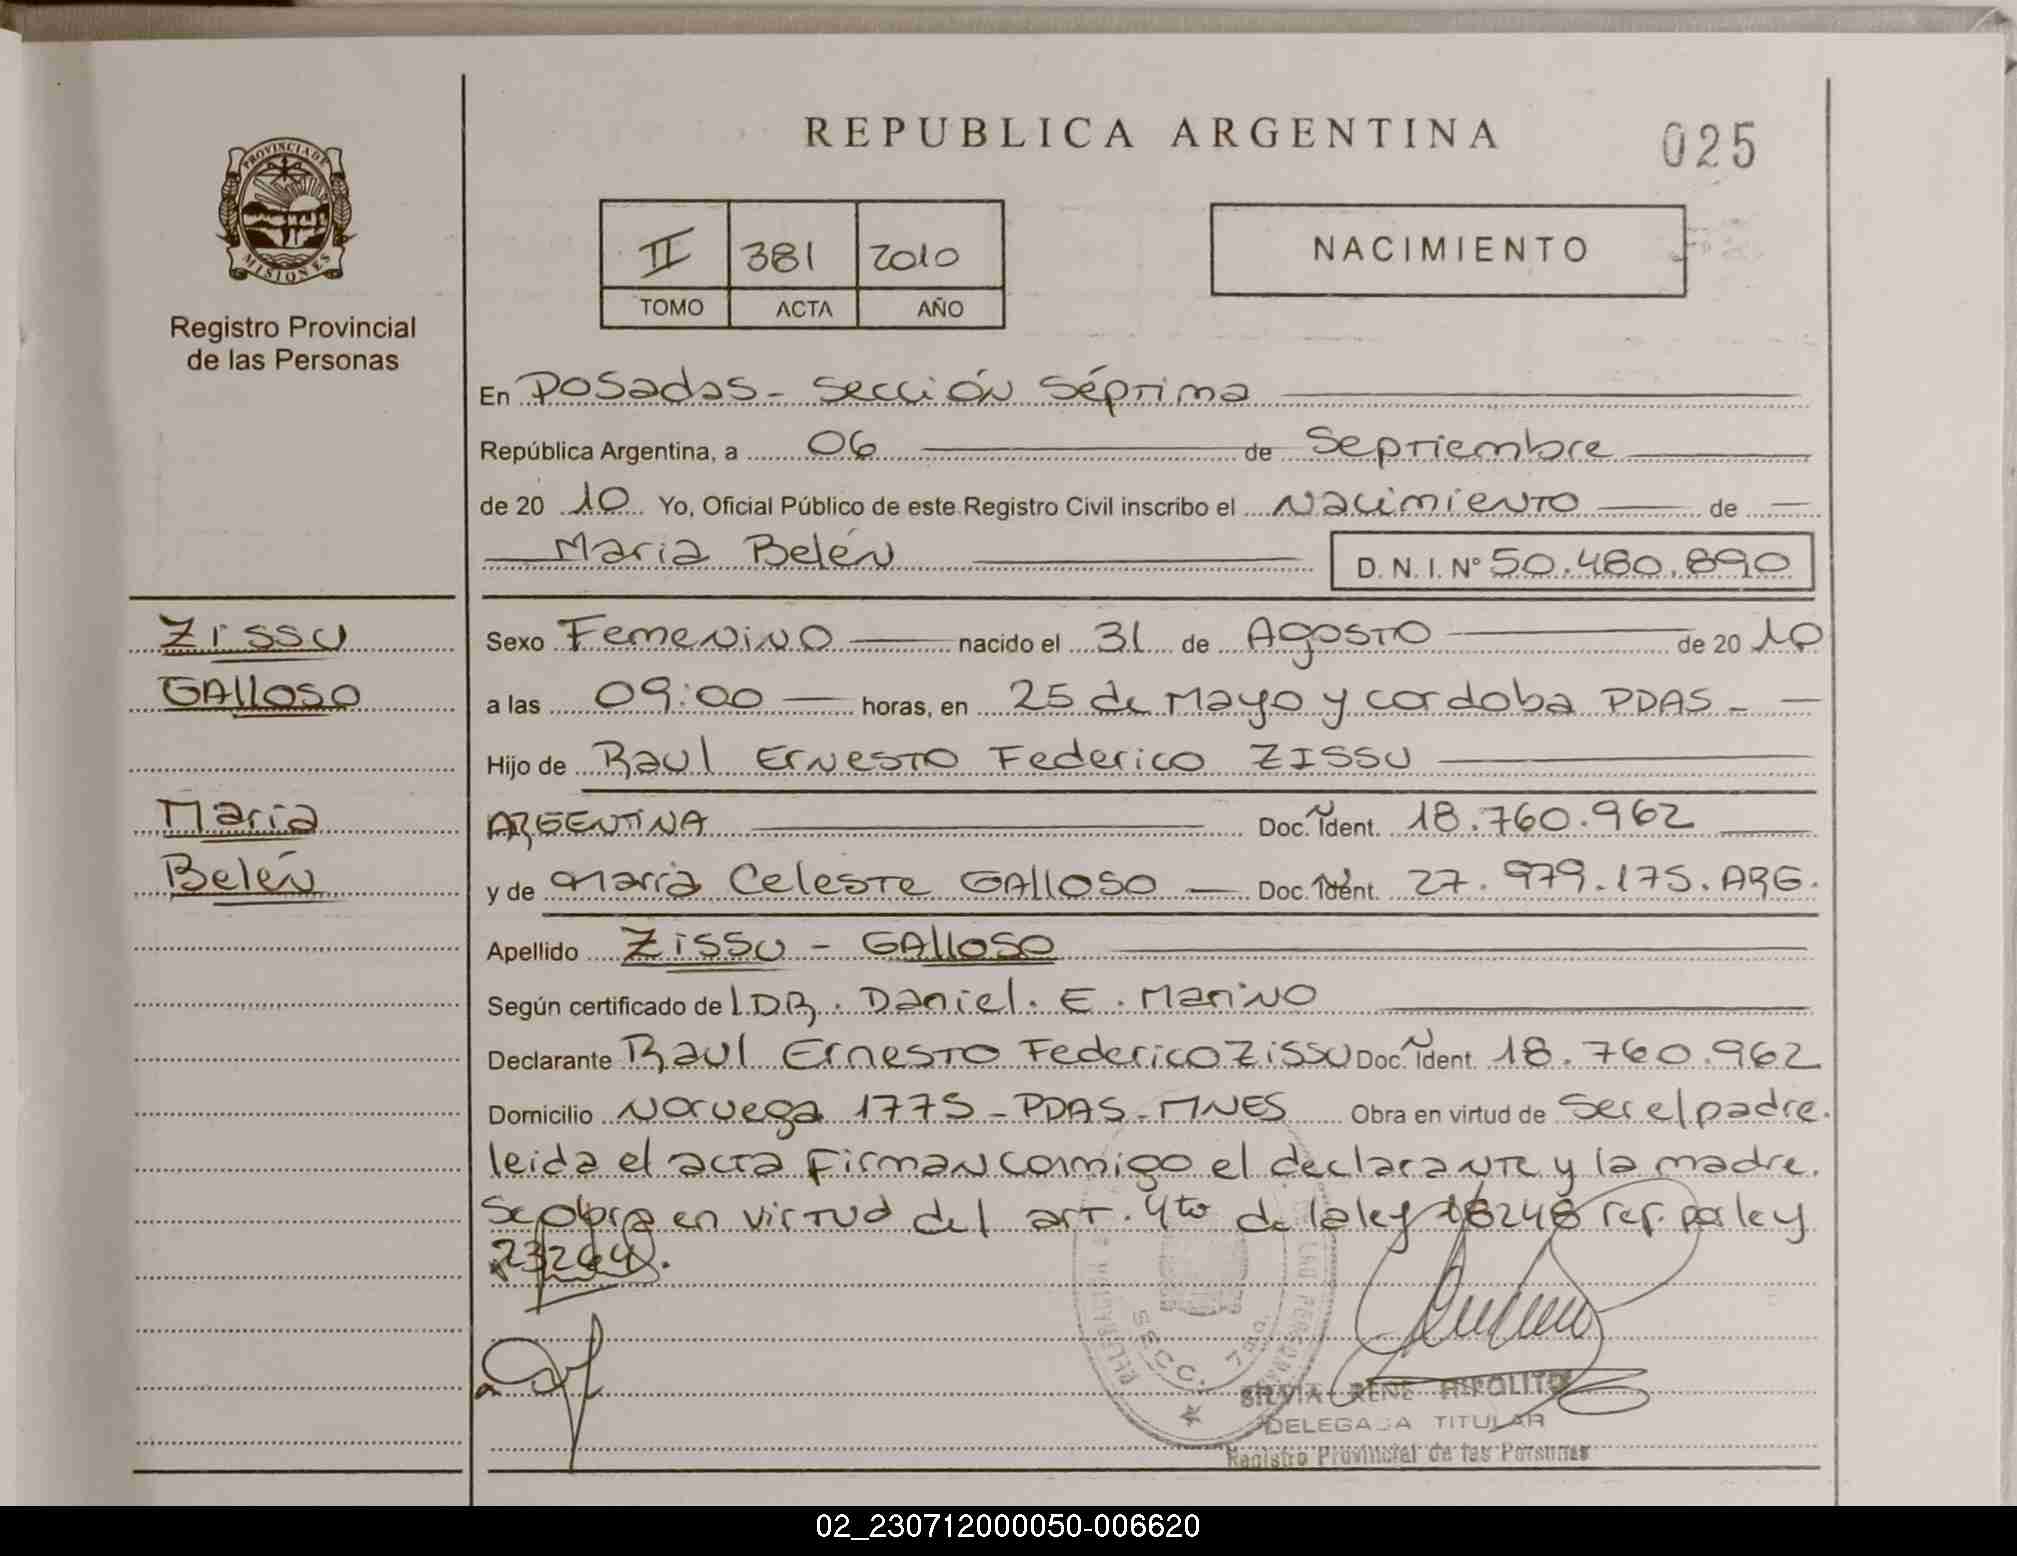 REPUBLICA ARGENTINA
025
PROVINCIA DE
MISIONES
Registro Provincial
de las Personas
II 381 2010
TOMO ACTA AÑO
NACIMIENTO
En Posadas - Sección Séptima
República Argentina, a 06 de Septiembre
de 20 10 Yo, Oficial Público de este Registro Civil inscribo el Nacimiento de
Maria Belén D. N. I. N° 50.480.890
Zissu
Galloso
Maria
Belén
Sexo Femenino nacido el 31 de Agosto de 20 10
a las 09:00 horas, en 25 de Mayo y cordoba PDAS -
Hijo de Raul Ernesto Federico ZISSU
ARGENTINA Doc. Ident. 18.760.962
y de Maria Celeste GAlloso Doc. Ident. 27.979.175. ARG.
Apellido Zissu - GAlloso
Según certificado de l.DR. Daniel. E. Marino
Declarante Raul Ernesto Federico Zissu Doc. Ident. 18.760.962
Domicilio Noruega 1775 - PDAS - MNES Obra en virtud de Ser el padre.
leida el acta Firman conmigo el declarante y la madre.
Se obra en virtud del art. 4to de la ley 18248 ref. por ley
23264.
SECC. 7ma.
SILVIA RENE HIPOLITO
DELEGADA TITULAR
Registro Provincial de las Personas
02_230712000050-006620